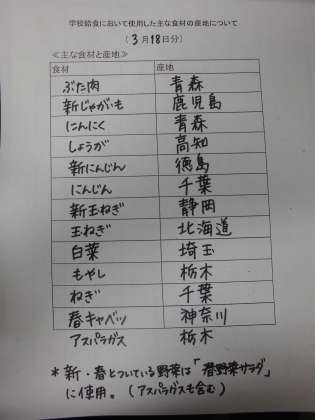 学校給食において使用した主な食材の産地について
(3月18日分)
≪主な食材と産地≫
食材 産地
ぶた肉 青森
新じゃがいも 鹿児島
にんにく 青森
しょうが 高知
新にんじん 徳島
にんじん 千葉
新玉ねぎ 静岡
玉ねぎ 北海道
白菜 埼玉
もやし 栃木
ねぎ 千葉
春キャベツ 神奈川
アスパラガス 栃木
*新・春とついている野菜は「春野菜サラダ」
に使用。(アスパラガスも含む)